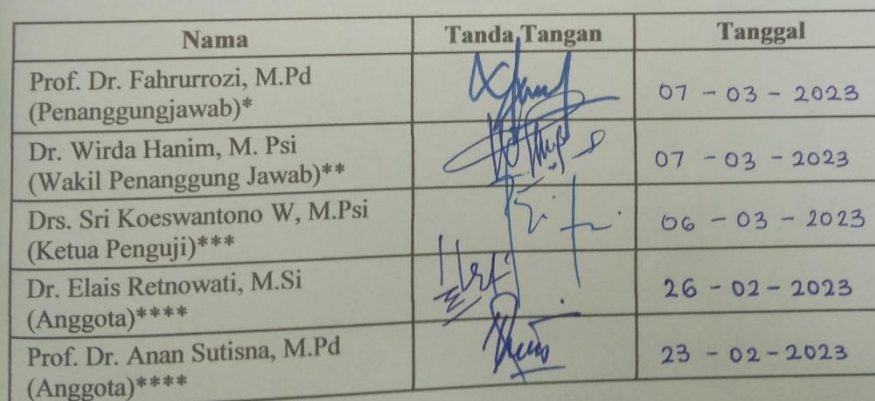 Nama Tanda Tangan Tanggal
Prof. Dr. Fahrurrozi, M.Pd
(Penanggungjawab)* 07 - 03 - 2023
Dr. Wirda Hanim, M. Psi
(Wakil Penanggung Jawab)** 07 - 03 - 2023
Drs. Sri Koeswantono W, M.Psi
(Ketua Penguji)*** 06 - 03 - 2023
Dr. Elais Retnowati, M.Si
(Anggota)**** 26 - 02 - 2023
Prof. Dr. Anan Sutisna, M.Pd
(Anggota)**** 23 - 02 - 2023